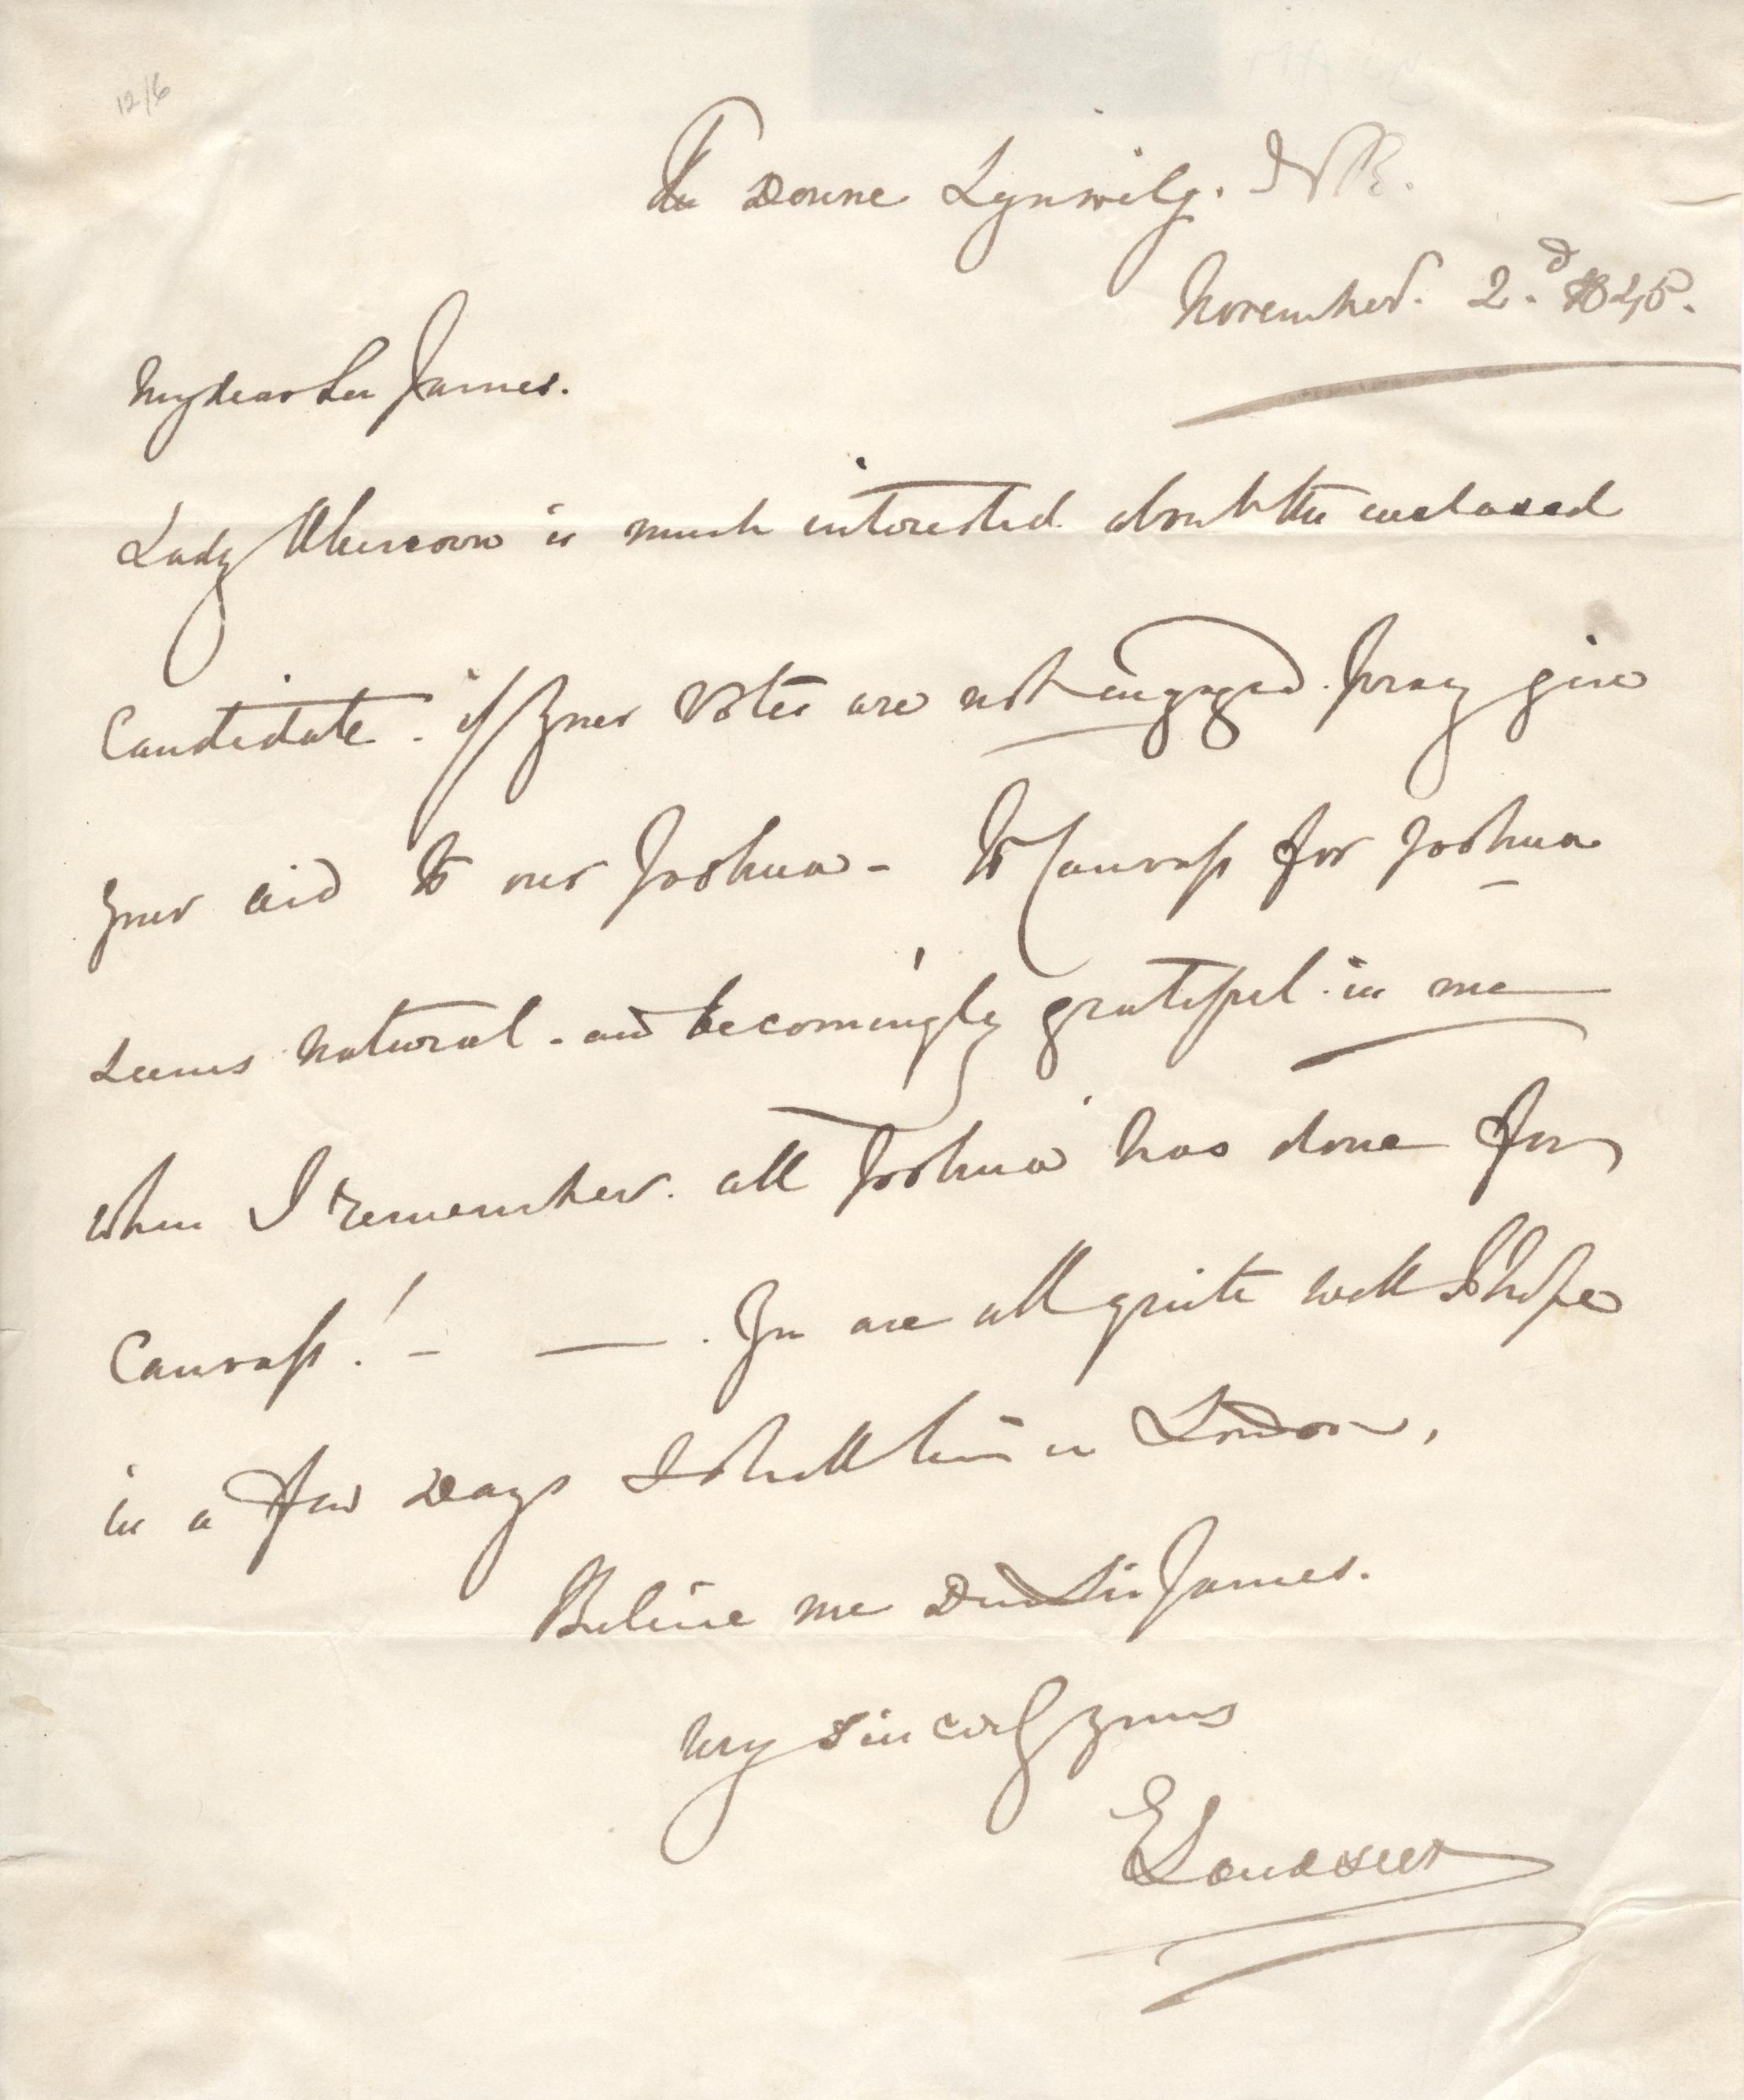 12/6
The Doune Lynwilg. N.B.
November. 2.d 1845.
My dear Sir James.
Lady Abercorn is much interested about the enclosed
Candidate. if your Votes are not engaged. pray give
your aid to our Joshua - to Canvass for Joshua
seems natural - and becomingly grateful. in me
when I remember. all Joshua has done for
Canvass! - — . You are all quite well I hope
in a few days I shall be in London,
Believe me Dear Sir James.
Very Sincerely yours
E Landseer